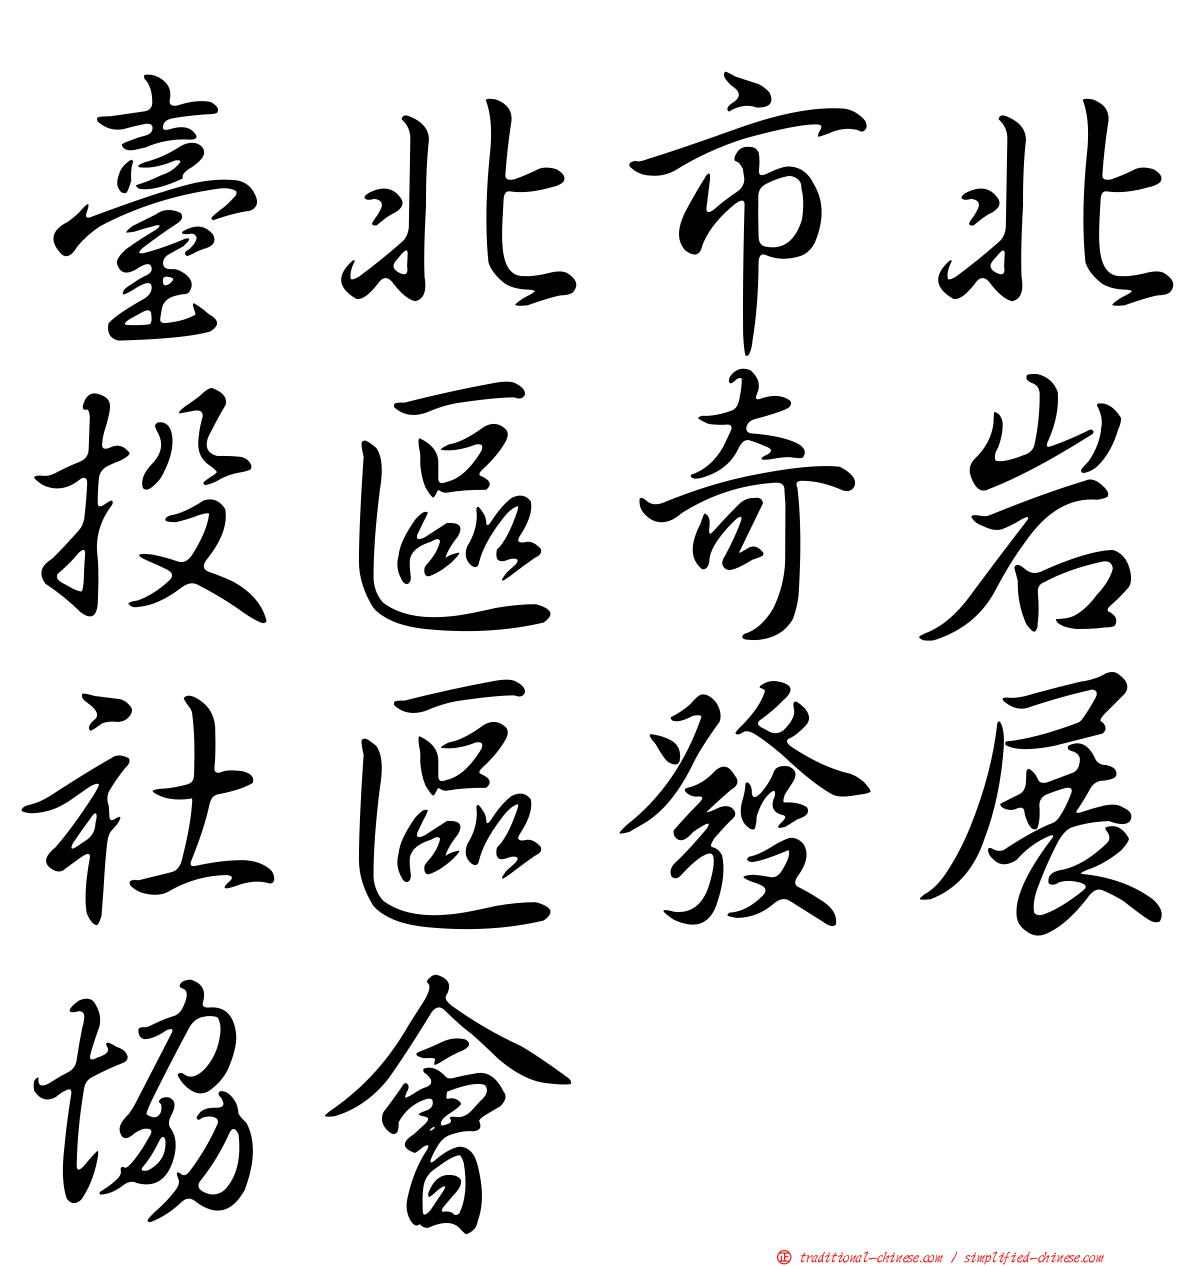 臺北市北
投區奇岩
社區發展
協會
正 traditional-chinese.com / simplified-chinese.com